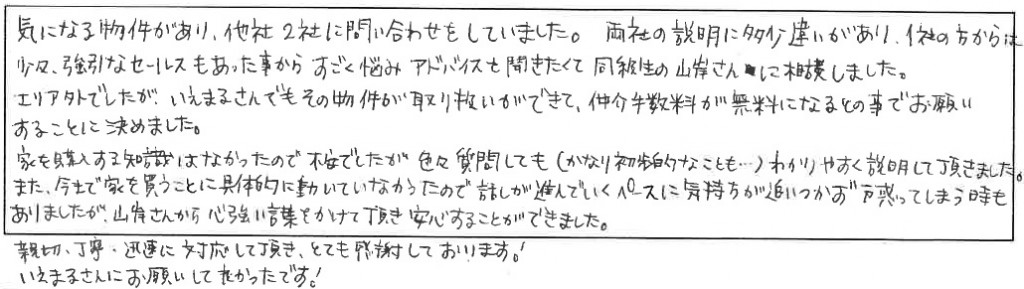 気になる物件があり、他社2社に問い合わせをしていました。 両社の説明に多少違いがあり、1社の方からは
少々、強引なセールスもあった事からすごく悩みアドバイスを聞きたくて同級生の山岸さんに相談しました。
エリア外でしたが、いえまるさんでもその物件が取り扱いができて、仲介手数料が無料になるとの事でお願い
することに決めました。
家を購入する知識はなかったので不安でしたが色々質問しても(かなり初歩的なことも…)わかりやすく説明して頂きました。
また、今まで家を買うことに具体的に動いていなかったので話しが進んでいくペースに気持ちが追いつかず戸惑ってしまう時も
ありましたが、山岸さんから心強い言葉をかけて頂き安心することができました。
親切、丁寧・迅速に対応して頂き、とても感謝しております!
いえまるさんにお願いして良かったです!